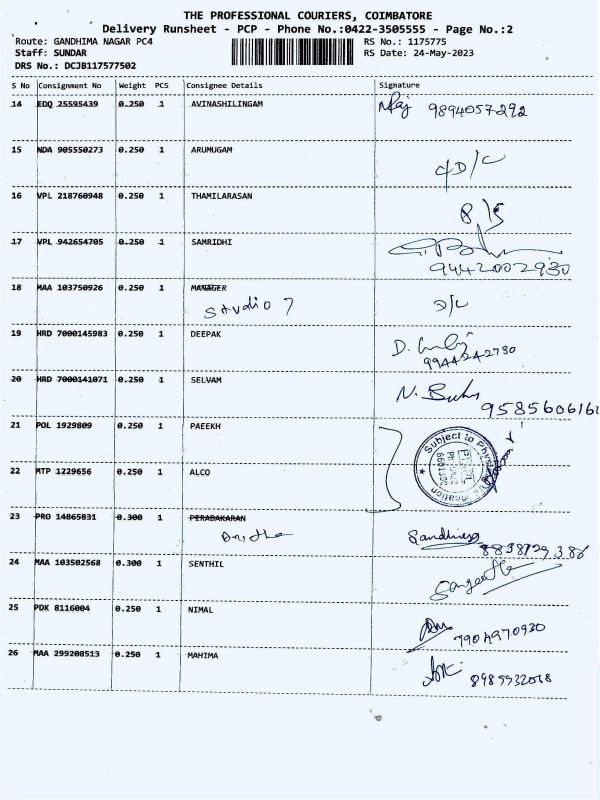 THE PROFESSIONAL COURIERS, COIMBATORE
Delivery Runsheet - PCP - Phone No.:0422-3505555 - Page No.:2
Route: GANDHIMA NAGAR PC4 RS No.: 1175775
Staff: SUNDAR RS Date: 24-May-2023
DRS No.: DCJB117577502
S No Consignment No Weight PCS Consignee Details Signature
14 EDQ 25595439 0.250 1 AVINASHILINGAM 9894057292
15 NDA 905550273 0.250 1 ARUMUGAM
16 VPL 218760948 0.250 1 THAMILARASAN
17 VPL 942654705 0.250 1 SAMRIDHI
9442002930
18 MAA 103750926 0.250 1 MANAGER D/C
Studio 7
19 HRD 7000145983 0.250 1 DEEPAK
9944242730
20 HRD 7000141071 0.250 1 SELVAM
9585606160
21 POL 1929809 0.250 1 PAEEKH
Subject to
22 MTP 1229656 0.250 1 ALCO
23 PRO 14865031 0.300 1 PERABAKARAN
24 MAA 103502568 0.300 1 SENTHIL
Sangeetha
25 PDK 8116004 0.250 1 NIMAL
7904970930
26 MAA 299208513 0.250 1 MAHIMA